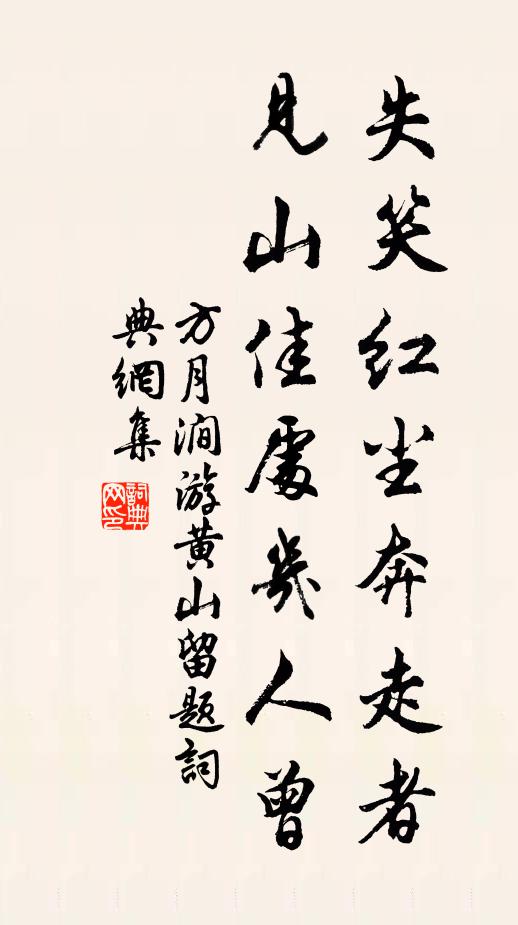 失笑红尘奔走者
見山佳處幾人曾
方月涧游黄山留题詞
典網集
詞典
网印